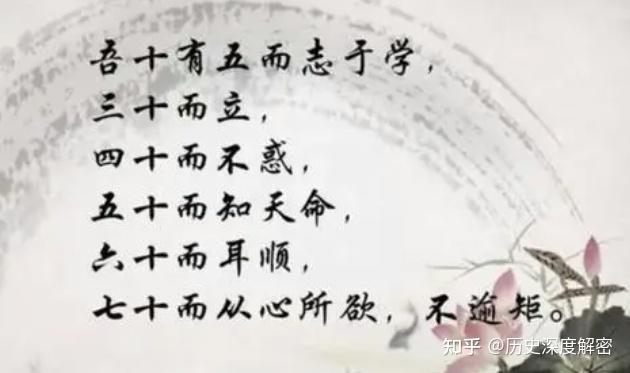 吾十有五而志于学，
三十而立，
四十而不惑，
五十而知天命，
六十而耳顺，
七十而从心所欲，不逾矩。
知乎 @历史深度解密